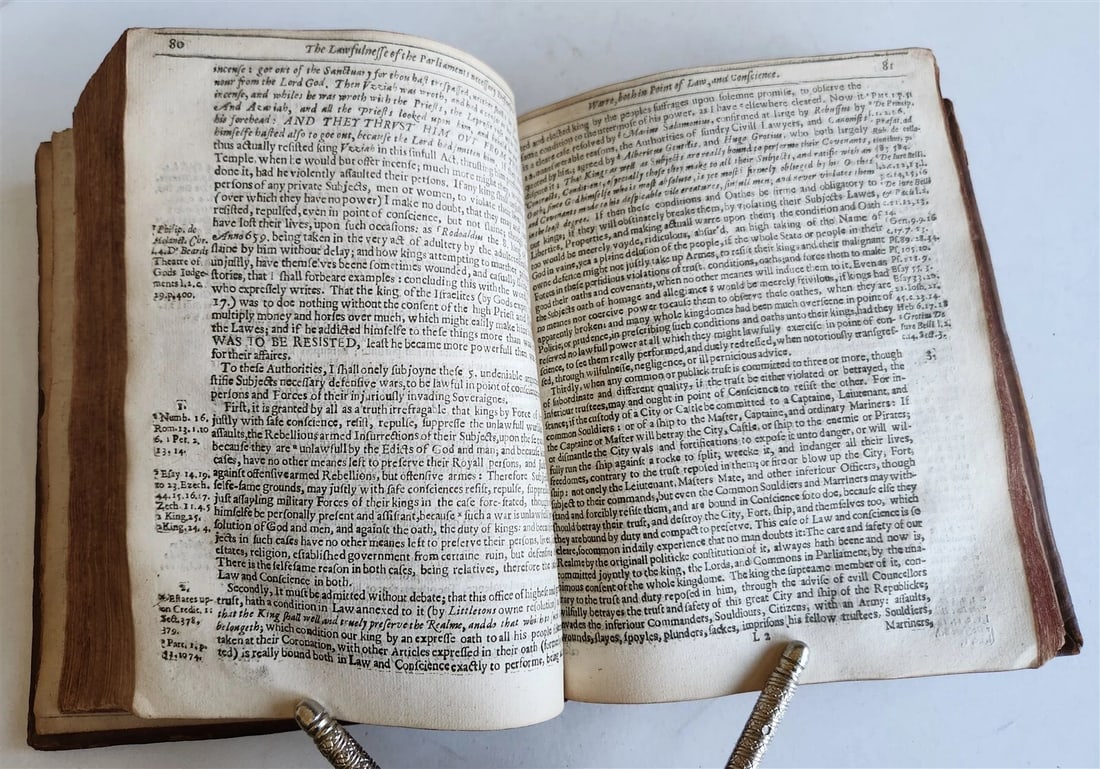 80
The Lawfulnesse of the Parliaments necessary
incense: goe out of the Sanctuary for thou hast trespassed, neither
nour from the Lord God. Then Vzziah was wroth, and had a
incense, and while he was wroth with the Priests, the Leprosie
And Azariah, and all the Priests looked upon him, and
his forehead: AND THEY THRVST HIM OVT FROM
himselfe hasted also to goe out, because the Lord had smitten him,
thus actually resisted king Vzziah in this sinfull Act, thrusting
Temple, when he would but offer incense; much more might
done it, had he violently assaulted their persons. If any king
persons of any private Subjects, men or women, to violate
(over which they have no power) I make no doubt, that they
resisted, repulsed, even in point of conscience, but not slaine
have lost their lives, upon such occasions: as Rodoaldus the 8.
Anno 659. being taken in the very act of adultery by the
slaine by him without delay; and how kings attempting to murther
unjustly, have themselves beene sometimes wounded, and
stories, that I shall forbeare examples: concluding this with the
who expressely writes. That the king of the Israelites (by Gods
17.) was to doe nothing without the consent of the high Priest and
multiply money and horses over much, which might easily make him
the Lawes; and if he addicted himselfe to these things more than
WAS TO BE RESISTED, least he became more powerfull then
for their affaires.
To these Authorities, I shall onely subjoyne these 5. undeniable
stifie Subjects necessary defensive wars, to be lawful in point of
persons and Forces of their injuriously invading Soveraignes.
First, it is granted by all as a truth irrefragable, that kings by Force of
justly with safe conscience, resist, repulse, suppresse the unlawfull
assaults, the Rebellious armed Insurrections of their Subjects, upon these
because they are unlawfull by the Edicts of God and man; and because
cases, have no other meanes left to preserve their Royall persons, and
against offensive armed Rebellions, but offensive armes: Therefore
selfe-same grounds, may justly with safe consciences resist, repulse,
just assayling military Forces of their kings in the case fore-stated, though
himselfe be personally present and assistant, because such a war is
solution of God and men, and against the oath, the duty of kings: and
jects in such cases have no other meanes left to preserve their persons,
estates, religion, established government from certaine ruin, but
There is the selfesame reason in both cases, being relatives, therefore the
Law and Conscience in both.
Secondly, It must be admitted without debate; that this office of highest
trust, hath a condition in Law annexed to it (by Littletons owne resolution)
that the King shall well and truely preserve the Realme, and do that
belongeth; which condition our king by an expresse oath to all his people
taken at their Coronation, with other Articles expressed in their oath
ted) is really bound both in Law and Conscience exactly to performe, being
Philip. de
Theatre of
Gods Judge-
ments l.1.c.
29.p.400.
1.
Numb. 16.
Rom. 13.1.to
6. 1 Pet. 2.
13, 14.
Esay 14.19.
to 23. Ezech.
44.15.16.17.
Zech. 11.4.5
2 King. 25.
2 King. 24, 4.
2.
Estates up-
on Credit.
Sect. 378,
379.
Part. 1. p.
Warre, both in Point of Law, and Conscience.
81
and elected king by the peoples suffrages upon solemne promise, to observe the
condition to the uttermost of his power, as I have elsewhere cleared. Now it
a cleare case resolved by Marius Salomonius, confirmed at large by Rebuffus by
reasons, the Authorities of sundry Civil Lawyers, and Canonists:
agreed by Albericus Gentilis, and Hugo Grotius, who both largely
The King as well as Subjects are really bound to performe their Covenants,
Contracts, Conditions, especially those they make to all their Subjects, and ratifie with an
God himselfe who is most absolute, is yet most firmely obliged by his Othes
and Covenants made to his despicable vile creatures, sinfull men, and never violates them
in the least degree. If then these conditions and Oathes be firme and obligatory to
our kings; if they will obstinately breake them, by violating their Subjects Lawes,
Liberties, Properties, and making actuall warre upon them; the condition and Oath
too would be meerely voyde, ridiculous, absurd, an high taking of the Name of
God in vaine, yea a plaine delusion of the people, if the whole State or people in their
owne defence might not justly take up Armes, to resist their kings and their malignant
Forces in these perfidious violations of trust, conditions, oaths; and force them to make
good their oaths and covenants, when no other meanes will induce them to it. Even as
the Subjects oath of homage and allegiance would be meerely frivilous, if kings had
no meanes nor coercive power to cause them to observe these oathes, when they are
apparently broken: and many whole kingdomes had been much overseene in point of
Policie, or prudence, in prescribing such conditions and oaths unto their kings, had they
reserved no lawfull power at all which they might lawfully exercise in point of con-
science, to see them really performed, and duely redressed, when notoriously transgres-
sed, through wilfulnesse, negligence, or ill pernicious advice.
Thirdly, when any common or publick trust is committed to three or more, though
of subordinate and different quality; if the trust be either violated or betrayed, the
inferiour trustees, may and ought in point of Conscience to resist the other. For in-
stance; if the custody of a City or Castle be committed to a Captaine, Leiutenant, and
common Souldiers: or of a ship to the Master, Captaine, and ordinary Mariners: If
the Captaine or Master will betray the City, Castle, or ship to the enemie or Pirates;
or dismantle the City wals and fortifications to expose it unto danger, or will wil-
fully run the ship against a rocke to split, wrecke it, and indanger all their lives,
freedomes, contrary to the trust reposed in them; or fire or blow up the City, Fort,
ship: not onely the Leiutenant, Masters Mate, and other inferiour Officers, though
subject to their commands, but even the Common Souldiers and Marriners may with-
stand and forcibly resist them, and are bound in Conscience so to doe, because else they
should betray their trust, and destroy the City, Fort, ship, and themselves too, which
they are bound by duty and compact to preserve. This case of Law and conscience is so
cleare, so common in daily experience that no man doubts it: The care and safety of our
Realme by the originall politicke constitution of it, alwayes hath beene and now is,
committed joyntly to the king, the Lords, and Commons in Parliament, by the una-
nimous consent of the whole kingdome. The king the supreame member of it, con-
trary to the trust and duty reposed in him, through the advise of evill Councellors
wilfully betrayes the trust and safety of this great City and ship of the Republicke;
invades the inferiour Commanders, Souldiours, Citizens, with an Army: assaults,
wounds, slayes, spoyles, plunders, sackes, imprisons his fellow trustees, Souldiers,
L 2
Mariners,
De Jure Belli
Gen. 9. 9.16
Ps. 89.28.34.
Ps. 105. 10.
Heb. 6.17.18
Grotius De
Jure Belli l. 2.
3.